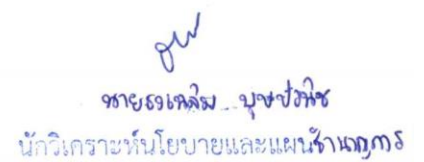 นาย บุษปวนิช
นักวิเคราะห์นโยบายและแผนชำนาญการ